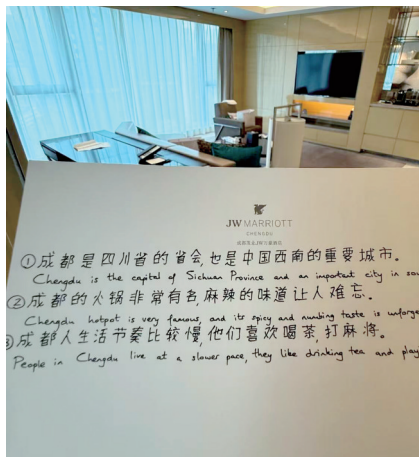 JW MARRIOTT
CHENGDU
①成都是四川省的省会,也是中国西南的重要城市。
Chengdu is the capital of Sichuan Province and an important city in
②成都的火锅非常有名,麻辣的味道让人难忘。
Chengdu hotpot is very famous, and its spicy and numbing taste is
成都人生活节奏比较慢,他们喜欢喝茶,打麻将。
People in Chengdu live at a slower pace, they like drinking tea and